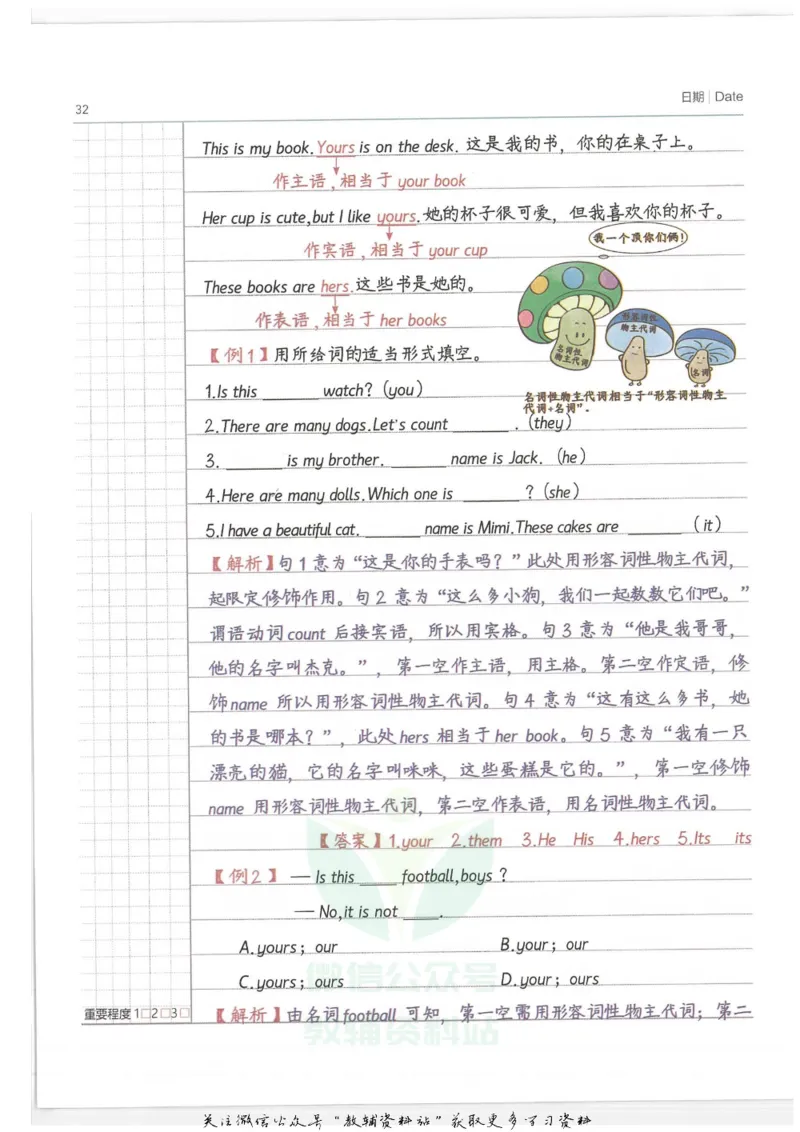 32
日期 | Date
This is my book.Yours is on the desk. 这是我的书，你的在桌子上。
作主语，相当于 your book
Her cup is cute,but I like yours.她的杯子很可爱，但我喜欢你的杯子。
我一个顶你们俩！
作宾语，相当于 your cup
These books are hers.这些书是她的。
作表语，相当于 her books
形容词性
物主代词
名词性
物主代词
名词
【例1】用所给词的适当形式填空。
1.Is this ______ watch?（you）
名词性物主代词相当于“形容词性物主
代词+名词”.
2.There are many dogs.Let's count ______ .（they）
3. ______ is my brother. ______ name is Jack.（he）
4.Here are many dolls.Which one is ______ ?（she）
5.I have a beautiful cat. ______ name is Mimi.These cakes are ______ （it）
【解析】句1意为“这是你的手表吗？”此处用形容词性物主代词，
起限定修饰作用。句2意为“这么多小狗，我们一起数数它们吧。”
谓语动词count 后接宾语，所以用宾格。句3意为“他是我哥哥，
他的名字叫杰克。”，第一空作主语，用主格。第二空作定语，修
饰name 所以用形容词性物主代词。句4意为“这有这么多书，她
的书是哪本？”，此处hers 相当于her book。句5意为“我有一只
漂亮的猫，它的名字叫咪咪，这些蛋糕是它的。”，第一空修饰
name 用形容词性物主代词，第二空作表语，用名词性物主代词。
【答案】1.your 2.them 3.He His 4.hers 5.Its its
【例2】—Is this ____ football,boys？
—No,it is not ____.
A.yours；our B.your；our
C.yours；ours D.your；ours
微信公众号
重要程度 1□2□3□
【解析】由名词football 可知，第一空需用形容词性物主代词；第二
教辅资料站
关注微信公众号“教辅资料站”获取更多学习资料